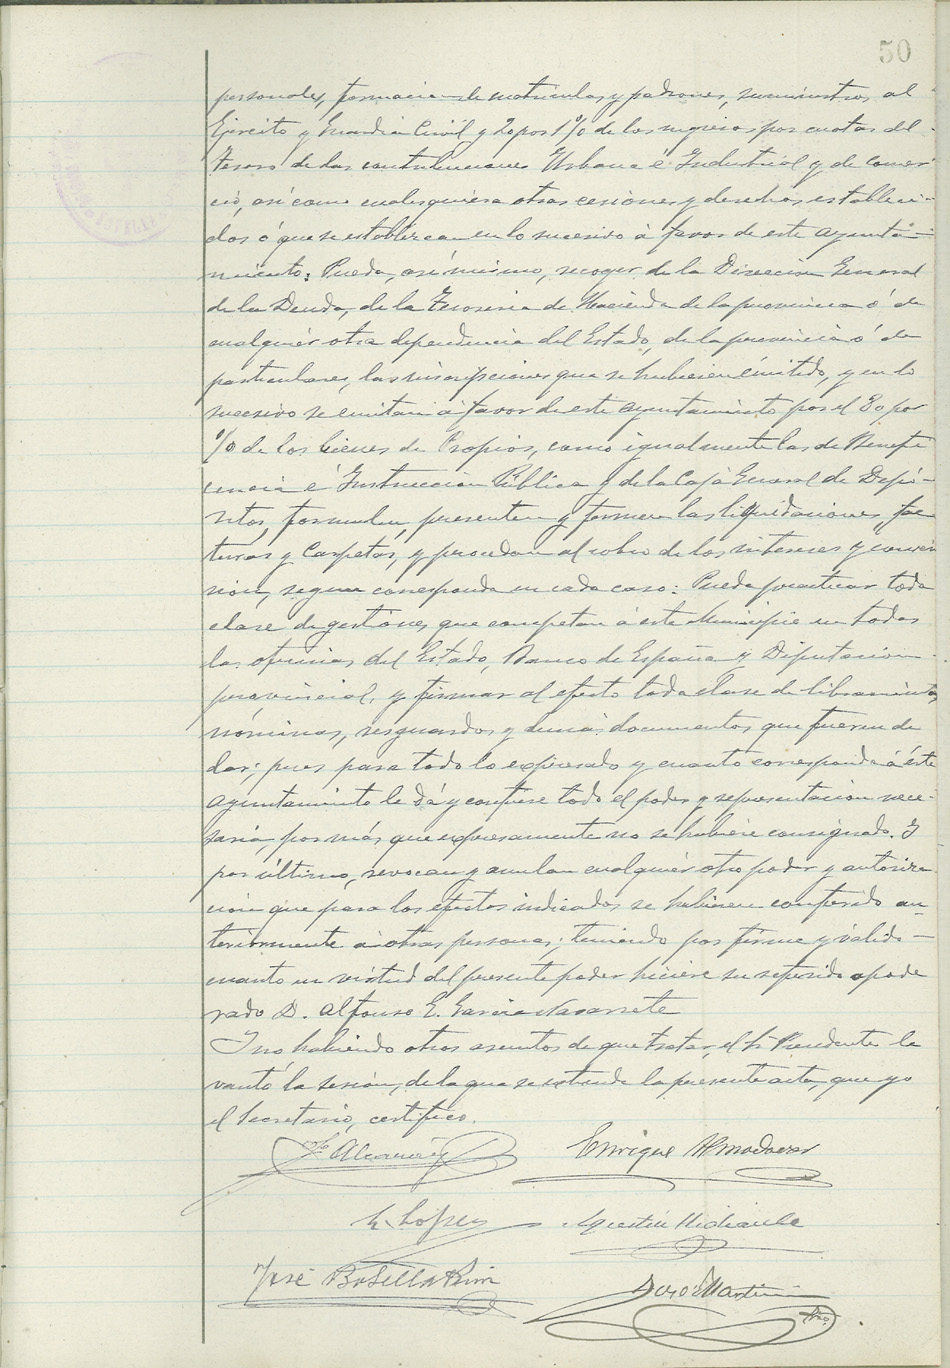 50
personales, formacion de matriculas y padrones, suministros al
Ejército y Guardia Civil y 20 por % de los ingresos por cuotas del
Tesoro de las contribuciones Urbana é Industrial y de comer-
cio, así como cualesquiera otras cesiones y derechos estableci-
dos ó que se establezcan en lo sucesivo á favor de este ayunta-
miento: Pueda, así mismo, recoger de la Direccion General
de la Deuda, de la Tesoreria de Hacienda de la provincia ó de
cualquier otra dependencia del Estado, de la provincia ó de
particulares, las inscripciones que se hubiesen émitido, y en lo
sucesivo se emitan á favor de este ayuntamiento por el 80 por
% de los bienes de Propios, como igualmente las de Benefi
cencia é Instruccion Pública y de la Caja General de Depó-
sitos, formulen, presenten y firmen las liquidaciones, fac
turas y carpetas, y procedan al cobro de los intereses y conver
sion, segun corresponda en cada caso: Pueda practicar toda
clase de gestiónes que competan á este Municipio en todas
las oficinas del Estado, Banco de España y Diputacion
provincial, y firmar al efecto toda clase de libramientos,
nóminas, resguardos y demás documentos que fueren de
dar; pues para todo lo expresado y cuanto corresponda á éste
ayuntamiento le dá y confiere todo el poder y representacion nece-
saria, por más que expresamente no se hubiere consignado. Y
por último, revocan y anulan cualquier otro poder y autoriza
ción que para los efectos indicados se hubiesen conferido an
teriormente á otras personas; teniendo por firme y válido
cuanto en virtud del presente poder hiciere su referido apode
rado D. Alfonso E. Garcia Navarrete
Y no habiendo otros asuntos de que tratar, el Sr Presidente le
vantó la sesión, de la que se extiende la presente acta, que yo
el Secretario, certifico.
Enrique Almodovar
López
Agustin
José Botella
Martin